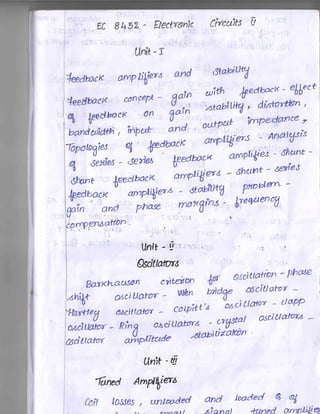 EC 8452 - Electronic Circuits II
Unit - I
Feedback amplifiers and stability
feedback concept - gain with feedback - effect
of feedback on gain stability, distortion,
bandwidth, input and output impedance,
Topologies of feedback amplifiers - Analysis
of Series - Series feedback amplifies - Shunt -
Shunt feedback amplifiers - shunt - series
feedback amplifiers - stability problem -
gain and phase margins - frequency
compensation.
Unit - II
Oscillators
Barkhausen criterion for oscillation - phase
shift oscillator - Wien bridge oscillator -
Hartley oscillator - Colpitt's oscillator - clapp
oscillator - Ring oscillators - crystal oscillators -
oscillator amplitude stabilization.
Unit - III
Tuned Amplifiers
Coil losses, unloaded and loaded Q of
signal tuned amplifie